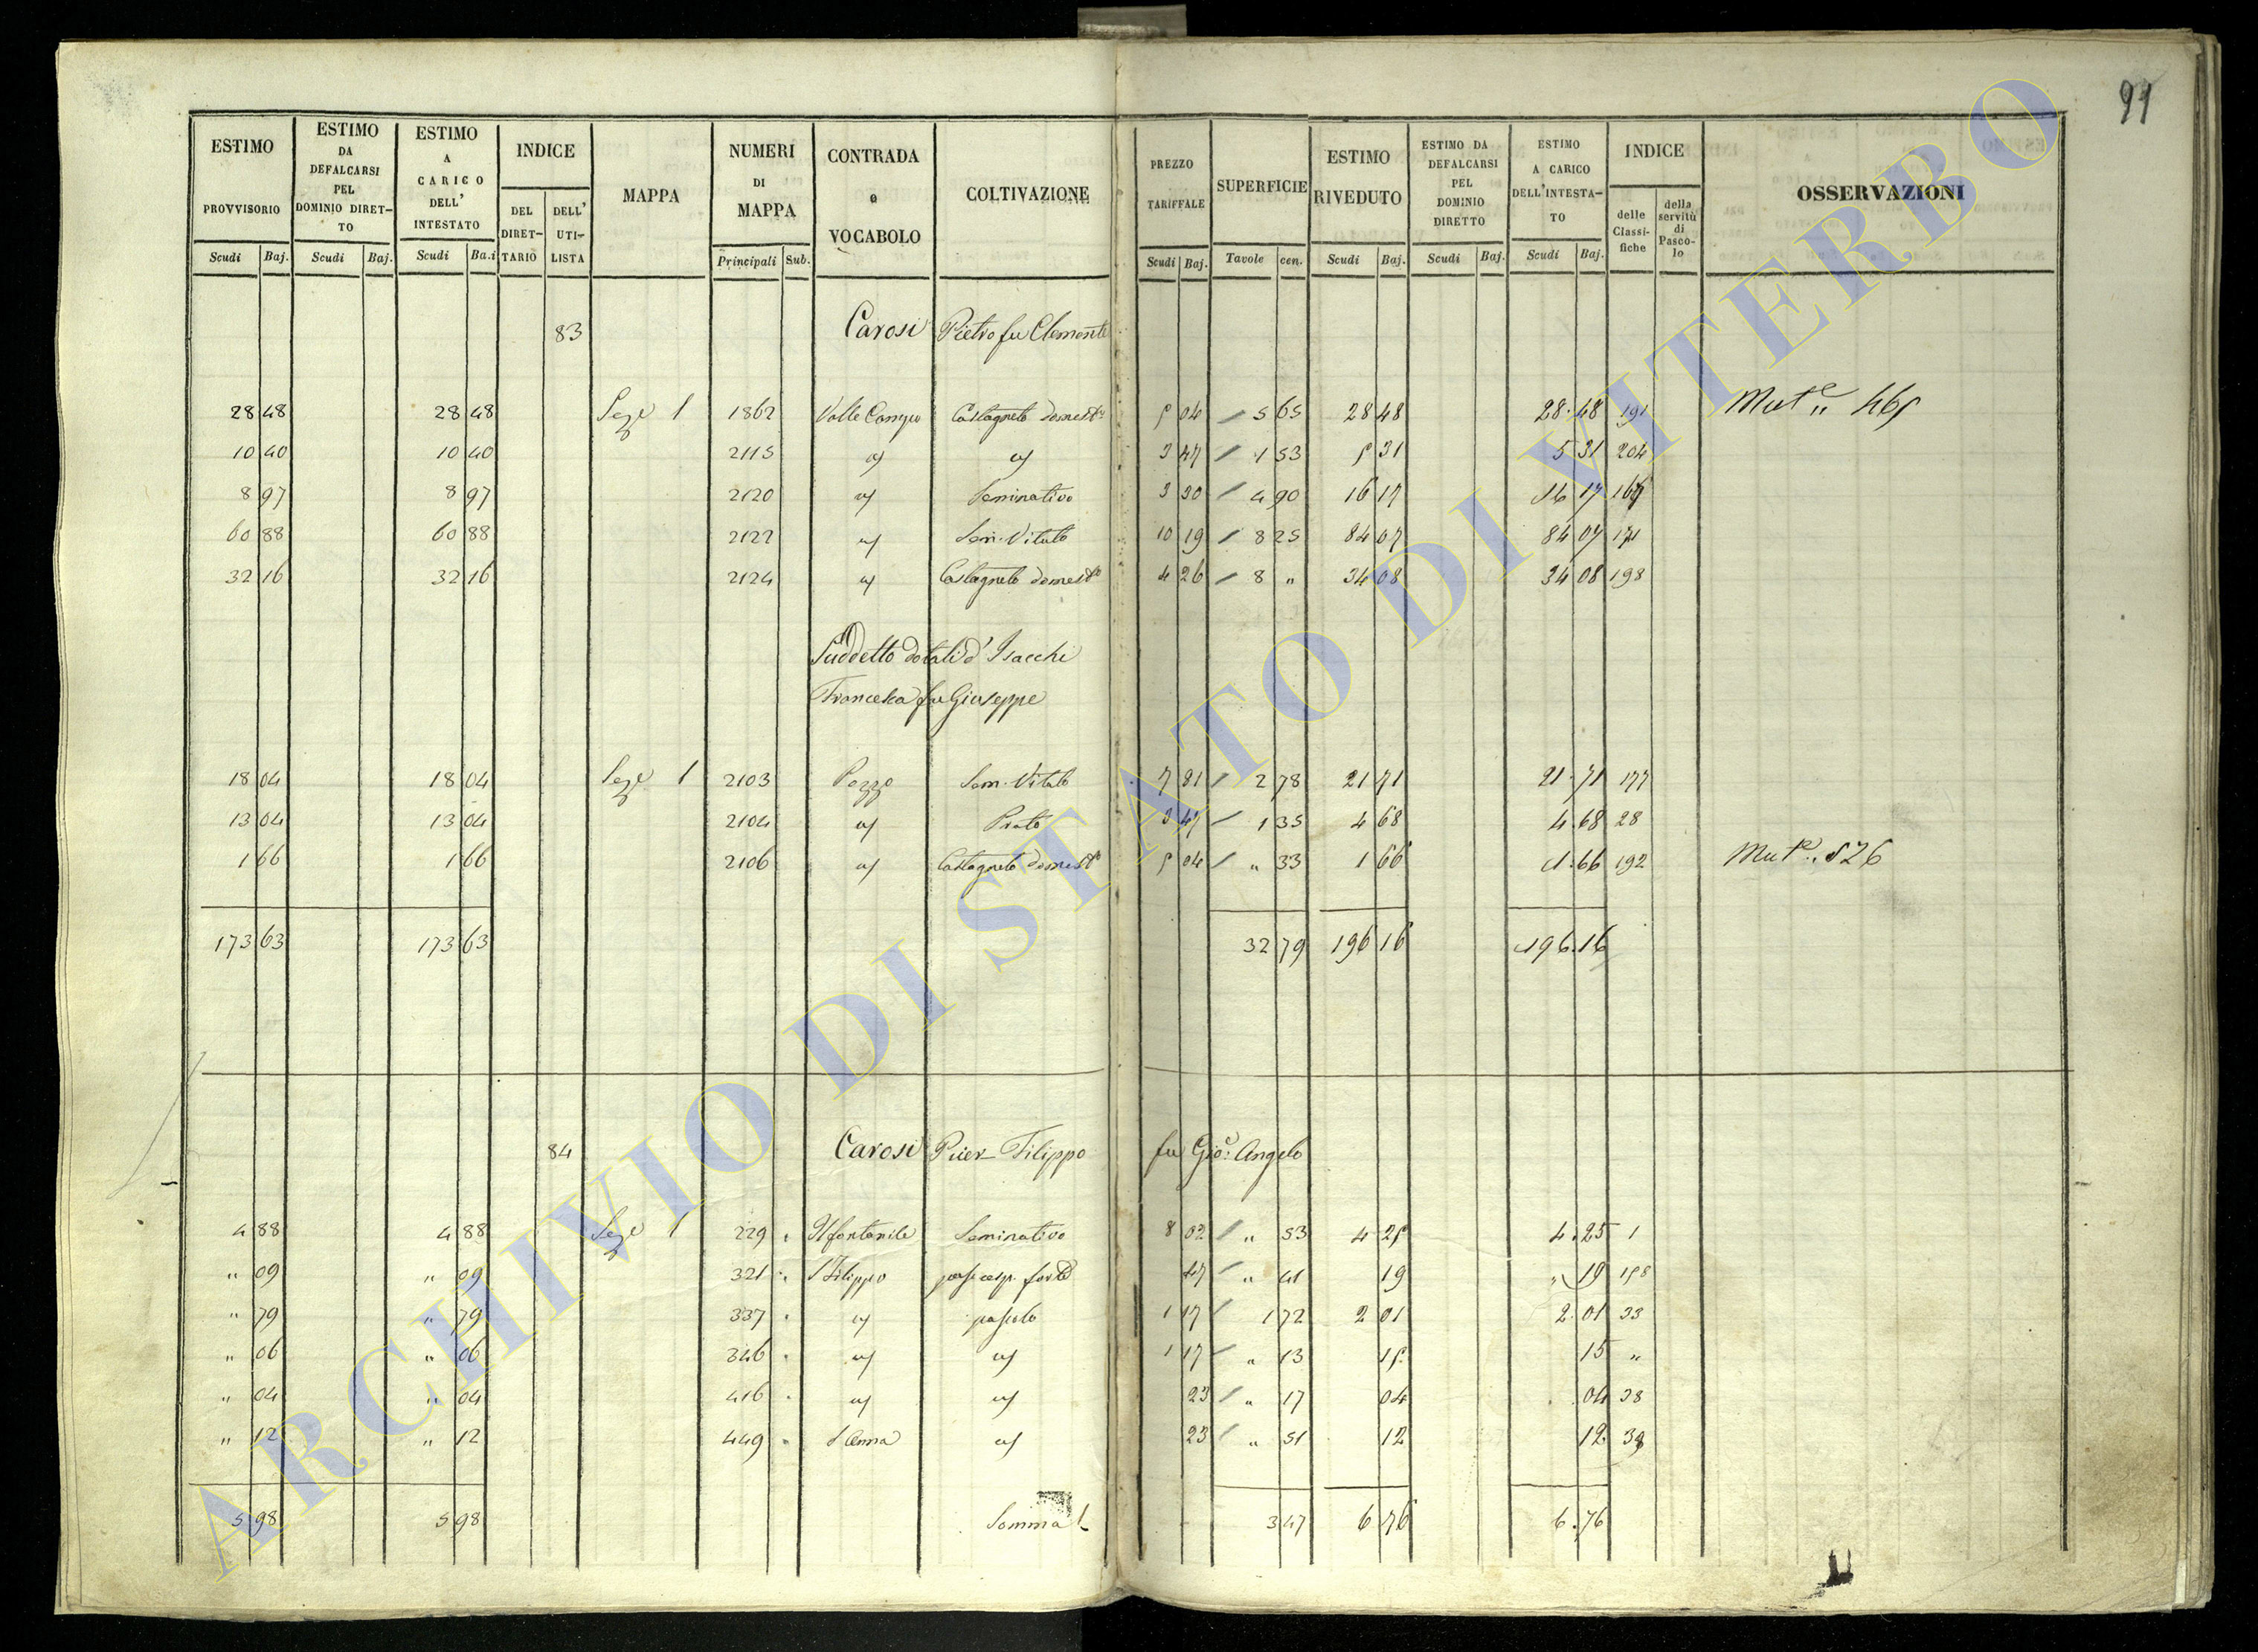 91
ESTIMO PROVVISORIO Scudi Baj.
ESTIMO DA DEFALCARSI PEL DOMINIO DIRETTO Scudi Baj.
ESTIMO A CARICO DELL' INTESTATO Scudi Ba.i
INDICE DEL DIRETTARIO DELL' UTILISTA
MAPPA
NUMERI DI MAPPA Principali Sub.
CONTRADA e VOCABOLO
COLTIVAZIONE
PREZZO TARIFFALE Scudi Baj.
SUPERFICIE Tavole cen.
ESTIMO RIVEDUTO Scudi Baj.
ESTIMO DA DEFALCARSI PEL DOMINIO DIRETTO Scudi Baj.
ESTIMO A CARICO DELL'INTESTATO Scudi Baj.
INDICE delle Classifiche della servitù di Pascolo
OSSERVAZIONI
83 Carosi Pietro fu Clemente
28 48 28 48 Seze 1 1862 Valle Campo Castagneto domest.o 5 04 / 5 65 28 48 28.48 191 Mut.e " 465
10 40 10 40 2115 " " 3 47 / 1 53 5 31 5 31 204
8 97 8 97 2120 " Seminativo 3 30 / 4 90 16 17 16 17 167
60 88 60 88 2122 " Sem. Vitato 10 19 / 8 25 84 07 84 07 171
32 16 32 16 2124 " Castagneto domest.o 4 26 / 8 " 34 08 34 08 198
Suddetto dotali d' Isacchi
Francesca fu Giuseppe
18 04 18 04 Seze 1 2103 Pozzo Sem. Vitato 7 81 / 2 78 21 71 21.71 177
13 04 13 04 2104 " Prato 3 47 / 1 35 4 68 4.68 28
1 66 1 66 2106 " Castagneto domest.o 5 04 / " 33 1 66 1.66 192 Mut.e " 526
173 63 173 63 32 79 196 16 196.16
84 Carosi Pier Filippo fu Gio: Angelo
4 88 4 88 Seze 1 229 Il fontanile Seminativo 8 02 / " 53 4 25 4.25 1
" 09 " 09 321 S Filippo pas. cesp. forte 47 / " 41 19 " 19 158
" 79 " 79 337 " pascolo 1 17 / 1 72 2 01 2.01 33
" 06 " 06 346 " " 1 17 / " 13 15 15 "
" 04 " 04 416 " " 23 / " 17 04 04 38
" 12 " 12 449 S Anna " 23 / " 51 12 12
5 98 5 98 Somma 3 47 6 76 6.76
ARCHIVIO DI STATO DI VITERBO